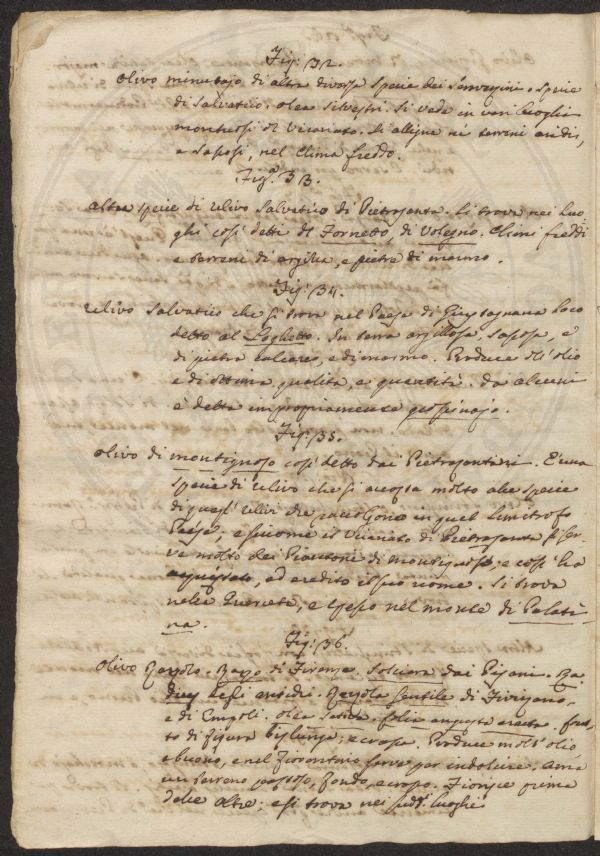 Fig. 32.
Olivo minutajo di altra diversa specie dei Seravezini. specie
di Salvatico. olea silvestri. Si vede in vari luoghi
montuosi di Vicariato. Si alligna ne terreni aridi,
e sassosi, nel clima freddo.
Fig.a 33.
altra specie di ulivo Salvatico di Pietrasanta. Si trova nei luo
ghi così detti di Fornetto, di Volegno. Climi freddi
e terreni di argilla, e pietre di marmo.
Fig. 34.
Ulivo Salvatico che si trova nel Paese di loco
detto al In terra argillosa, sassosa, e
di pietra calcarea, e di marmo. Produce dell'olio
e di ottima qualità, e quantità. da alcuni
è detta impropriamente
Fig. 35.
Olivo di montignoso così detto dai Pietrasantini. È una
specie di ulivo che si accosta molto alle specie
di quegl'ulivi che raccolgono in quel limitrofo
Paese, e siccome il Vicariato di Pietrasanta si ser-
ve molto dei Piantoni di montignoso, e così ha
acquistato, ed eredito il suo nome. Si trova
nella Querceta, e spesso nel monte di Palati-
na.
Fig. 36.
Olivo Razzolo. Razzo di Firenze. dai Pisani. Ra-
Razzola Gentile di
e di Empoli. olea sativa. folio angusto erecto. frut-
to di figura bislunga, e crassa. Produce molt'olio
e buono, e nel Fiorentino serve per indolcire. ama
un terreno fondo, e Fiorisce prima
delle altre; e si trova nei sudd.i luoghi